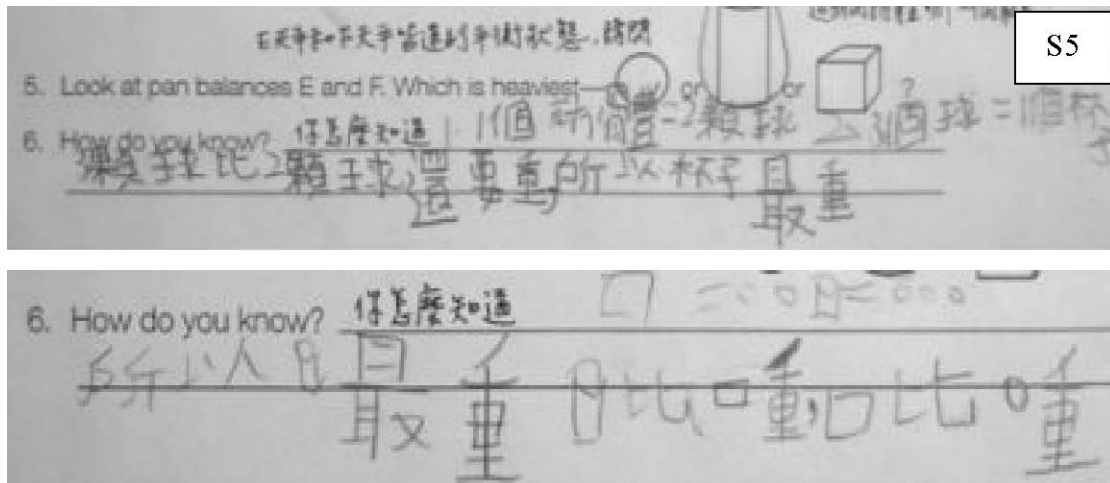 S5
在天平E和下天平皆達到平衡狀態,請問
5. Look at pan balances E and F. Which is heaviest— or or ?
6. How do you know? 你怎麼知道 1個 =2顆球 3個球=1個杯子
顆球比2顆球還要重,所以杯子最重
6. How do you know? 你怎麼知道 □=○○日=○○○
所以日最重日比□重,□比○重